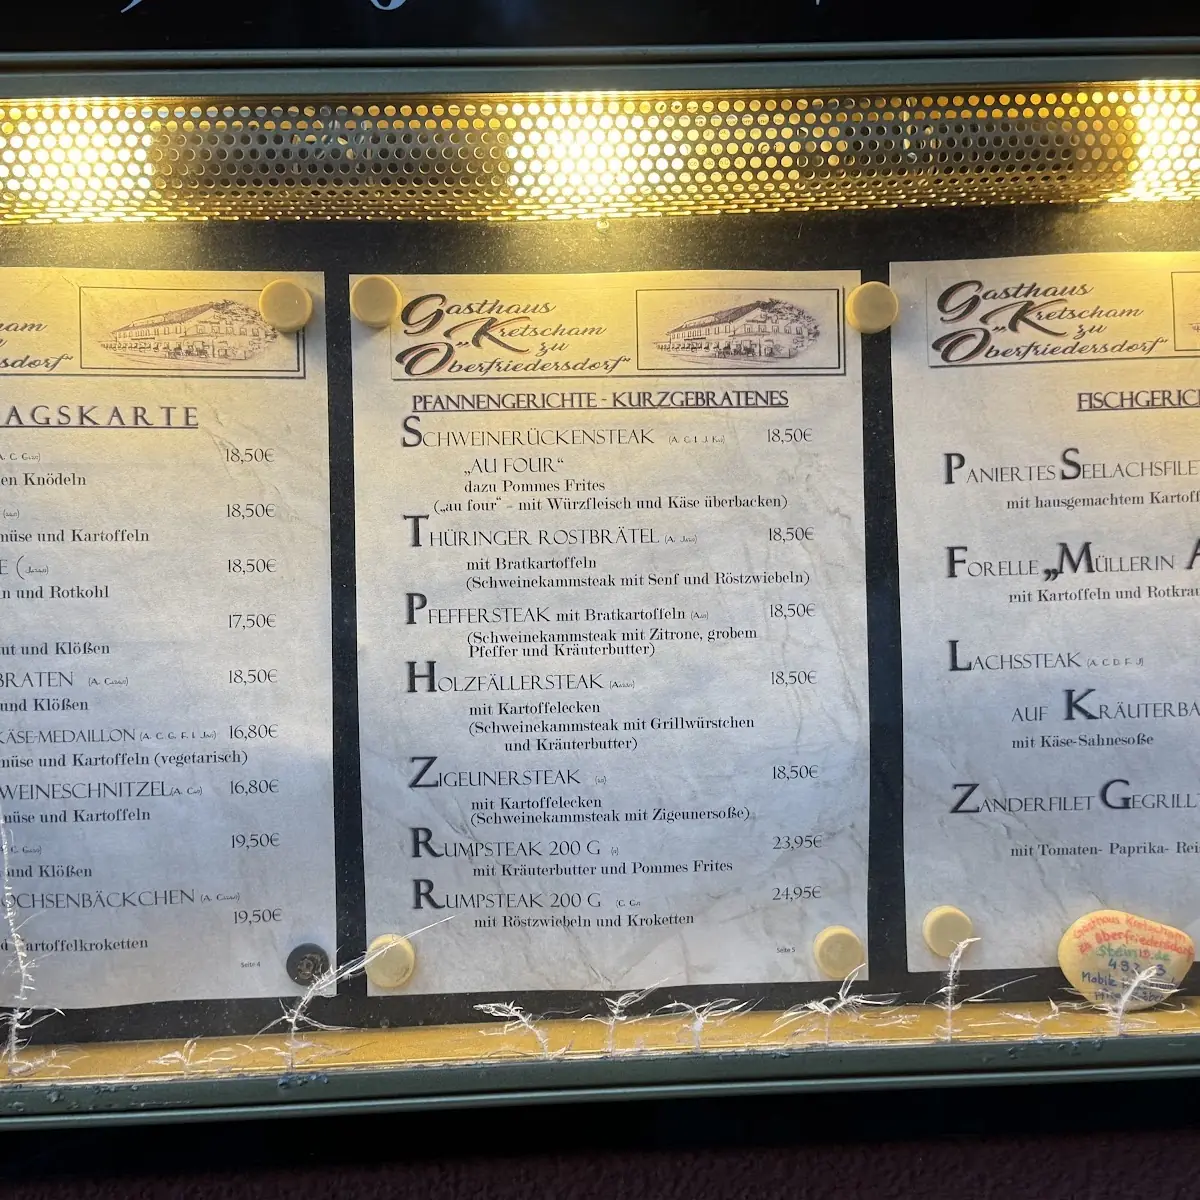 AGSKARTE
18,50€
en Knödeln
18,50€
müse und Kartoffeln
18,50€
n und Rotkohl
17,50€
ut und Klößen
BRATEN 18,50€
und Klößen
KÄSE-MEDAILLON (A. C. G. F. I. J) 16,80€
müse und Kartoffeln (vegetarisch)
WEINESCHNITZEL 16,80€
müse und Kartoffeln
19,50€
und Klößen
OCHSENBÄCKCHEN
19,50€
d Kartoffelkroketten
Seite 4
Gasthaus
„Kretscham
zu
Oberfriedersdorf“
PFANNENGERICHTE - KURZGEBRATENES
SCHWEINERÜCKENSTEAK 18,50€
„AU FOUR“
dazu Pommes Frites
(„au four“ – mit Würzfleisch und Käse überbacken)
THÜRINGER ROSTBRÄTEL 18,50€
mit Bratkartoffeln
(Schweinekammsteak mit Senf und Röstzwiebeln)
PFEFFERSTEAK mit Bratkartoffeln 18,50€
(Schweinekammsteak mit Zitrone, grobem
Pfeffer und Kräuterbutter)
HOLZFÄLLERSTEAK 18,50€
mit Kartoffelecken
(Schweinekammsteak mit Grillwürstchen
und Kräuterbutter)
ZIGEUNERSTEAK 18,50€
mit Kartoffelecken
(Schweinekammsteak mit Zigeunersoße)
RUMPSTEAK 200 G 23,95€
mit Kräuterbutter und Pommes Frites
RUMPSTEAK 200 G 24,95€
mit Röstzwiebeln und Kroketten
Seite 5
Gasthaus
„Kretscham
zu
Oberfriedersdorf“
FISCHGERIC
PANIERTES SEELACHSFILE
mit hausgemachtem Kartoff
FORELLE „MÜLLERIN A
mit Kartoffeln und Rotkrau
LACHSSTEAK (A C D F J)
AUF KRÄUTERBA
mit Käse-Sahnesoße
ZANDERFILET GEGRILL
mit Tomaten- Paprika- Rei
Gasthaus Kretscham
zu Oberfriedersdorf